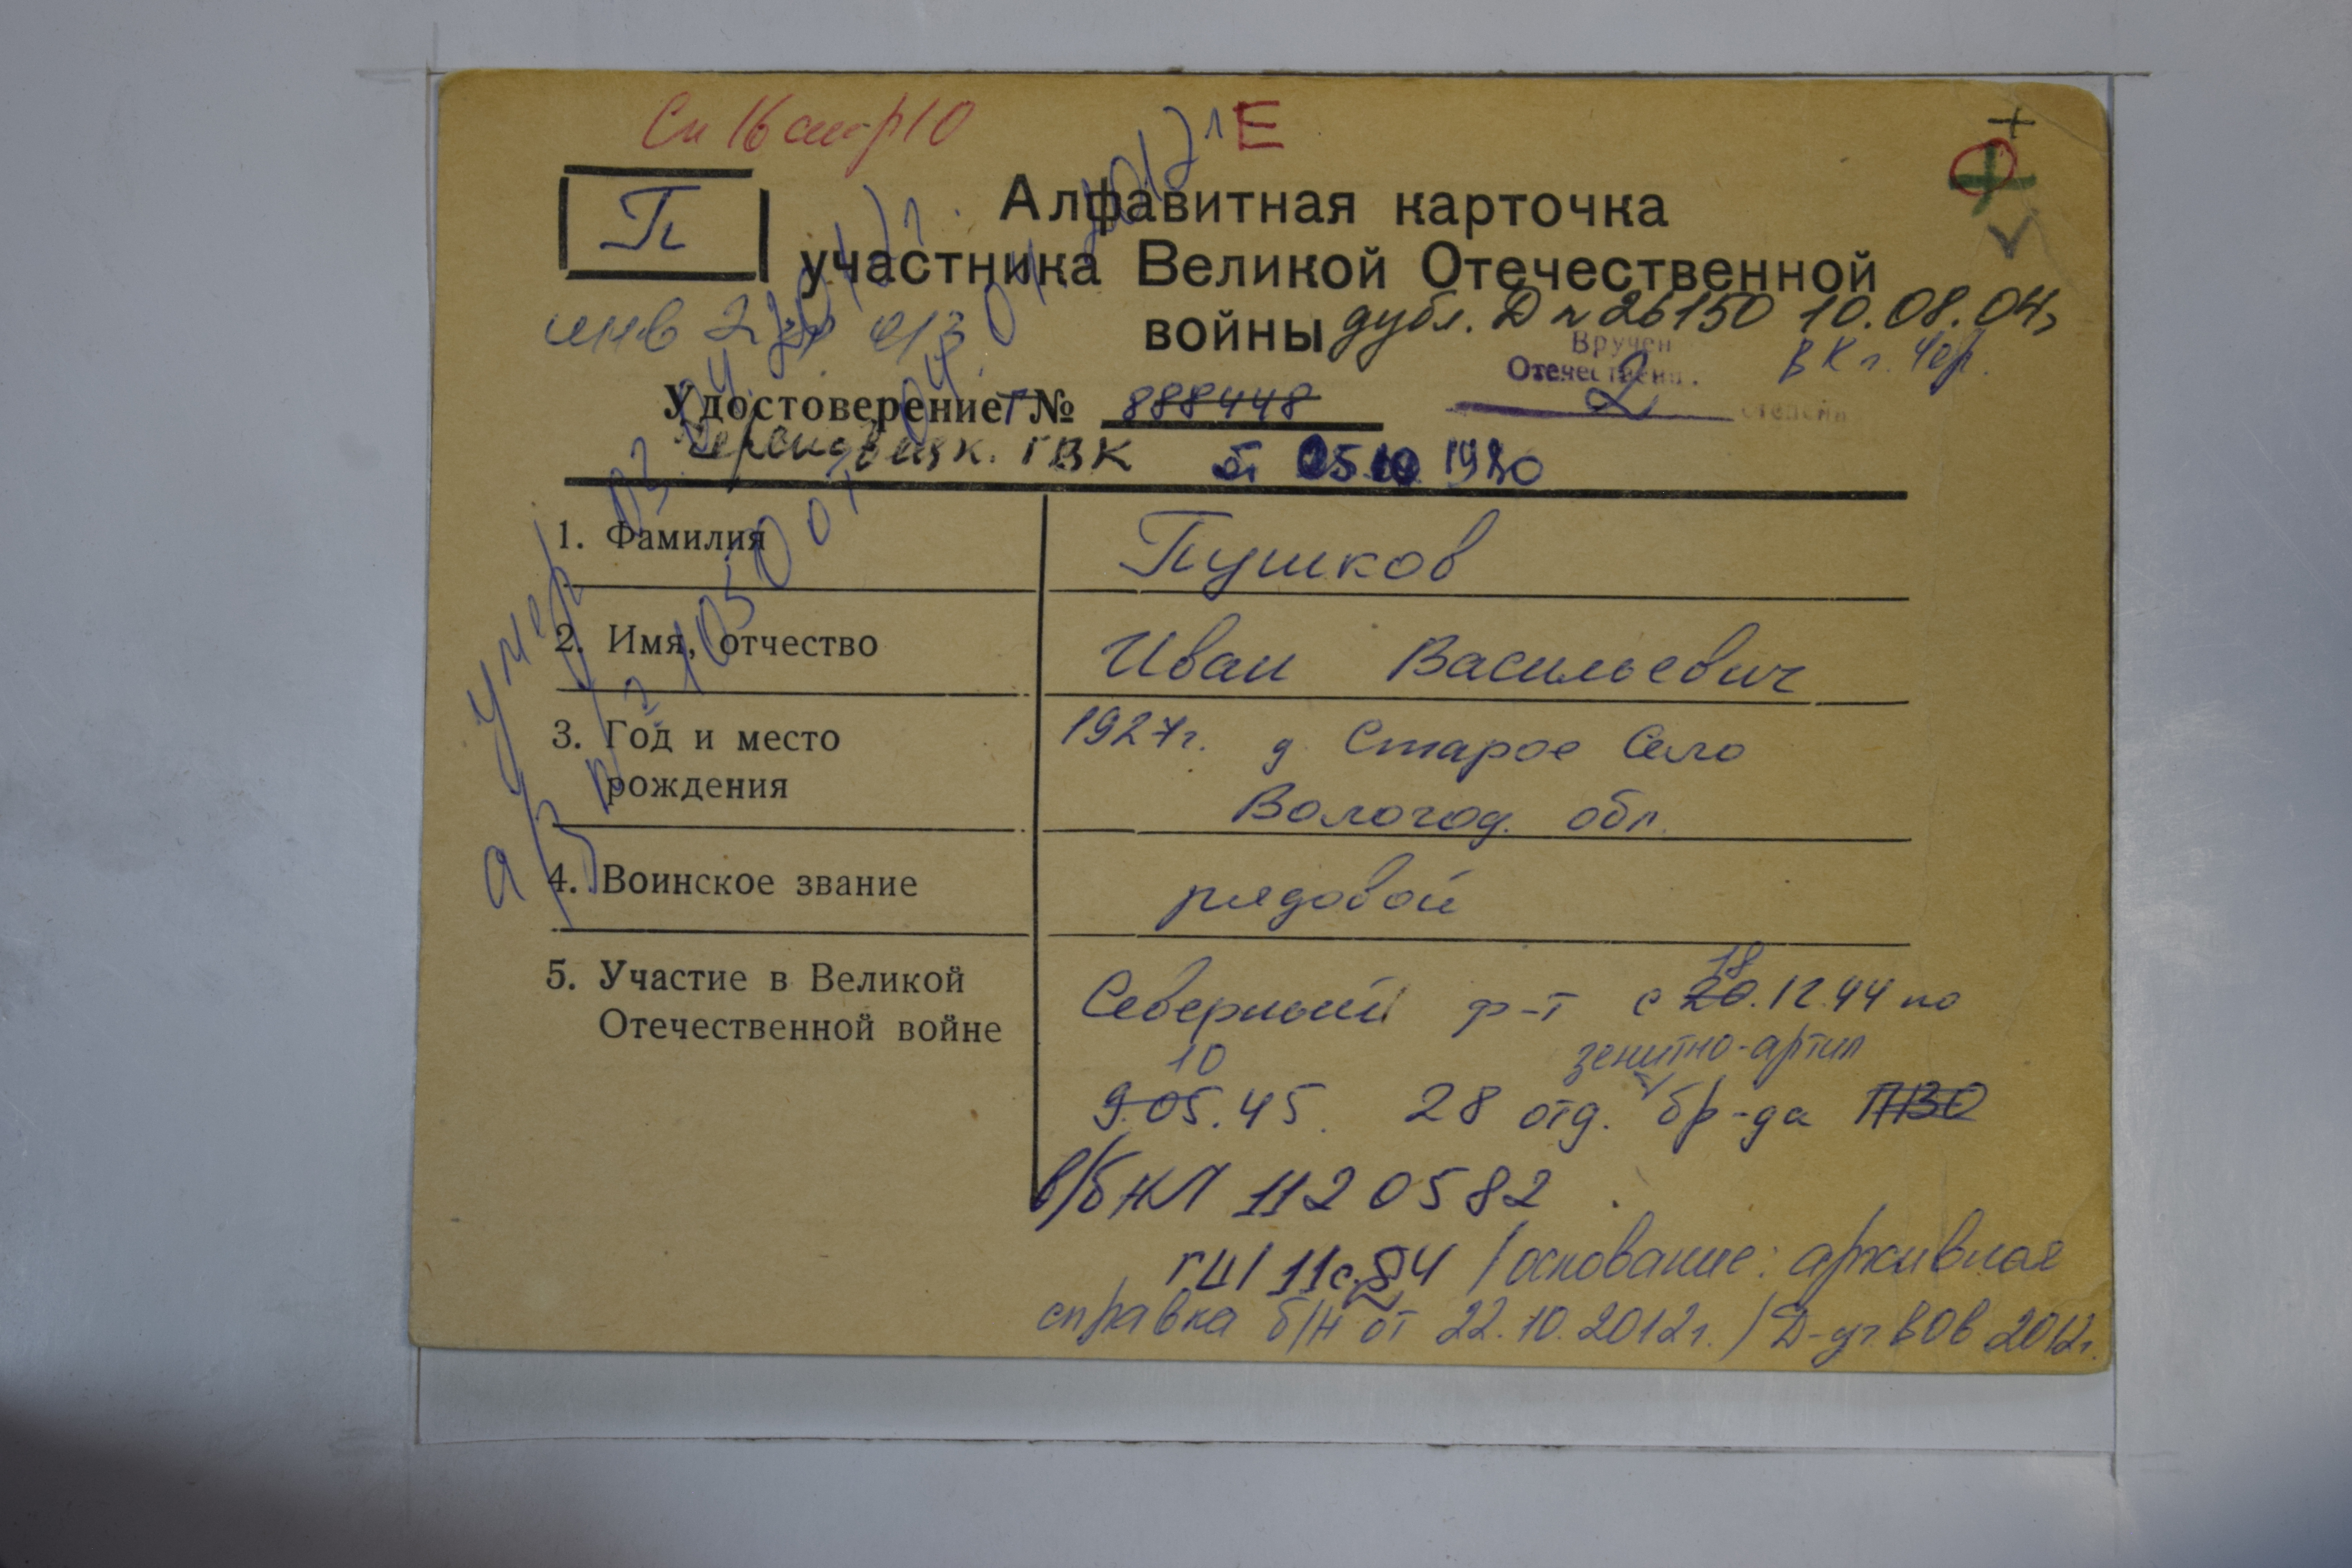 Сп 16 стр 10
Е
П
Алфавитная карточка
участника Великой Отечественной
войны
дубл. Д № 26150 10.08.04г
ВК г. Чер.
инв 2 гр
Вручен
Отечественн.
2
степени
Удостоверение Г № 888448
Череповецк. ГВК от 05 10 1980
умер
1. Фамилия
Пушков
2. Имя, отчество
Иван Васильевич
3. Год и место
рождения
1927г. д Старое Село
Вологод. обл.
4. Воинское звание
рядовой
5. Участие в Великой
Отечественной войне
18
Северный ф-т с 20.12.44 по
10 зенитно-артил
9.05.45. 28 отд. бр-да ПВО
в/б НЛ 1120582
ГШ 11с.84 / основание: архивная
справка б/н от 22.10.2012г. / Д-уг ВОВ 2012г.